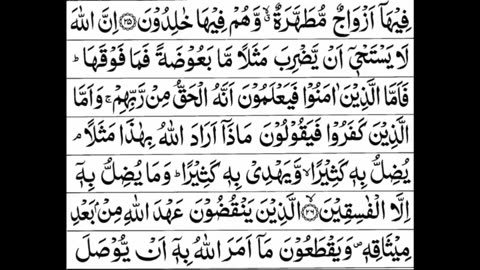 فِيْهَآ اَزْوَاجٌ مُّطَهَّرَةٌ ۙ وَّهُمْ فِيْهَا خٰلِدُوْنَ ﴿۲۵﴾ اِنَّ اللّٰهَ
لَا يَسْتَحْيٖۤ اَنْ يَّضْرِبَ مَثَلًا مَّا بَعُوْضَةً فَمَا فَوْقَهَا ؕ
فَاَمَّا الَّذِيْنَ اٰمَنُوْا فَيَعْلَمُوْنَ اَنَّهُ الْحَقُّ مِنْ رَّبِّهِمْ ۚ وَاَمَّا
الَّذِيْنَ كَفَرُوْا فَيَقُوْلُوْنَ مَاذَاۤ اَرَادَ اللّٰهُ بِهٰذَا مَثَلًا ۘ
يُضِلُّ بِهٖ كَثِيْرًا ۙ وَّيَهْدِيْ بِهٖ كَثِيْرًا ؕ وَمَا يُضِلُّ بِهٖۤ
اِلَّا الْفٰسِقِيْنَ ﴿۲۶﴾ الَّذِيْنَ يَنْقُضُوْنَ عَهْدَ اللّٰهِ مِنْۢ بَعْدِ
مِيْثَاقِهٖ ۪ وَيَقْطَعُوْنَ مَاۤ اَمَرَ اللّٰهُ بِهٖۤ اَنْ يُّوْصَلَ